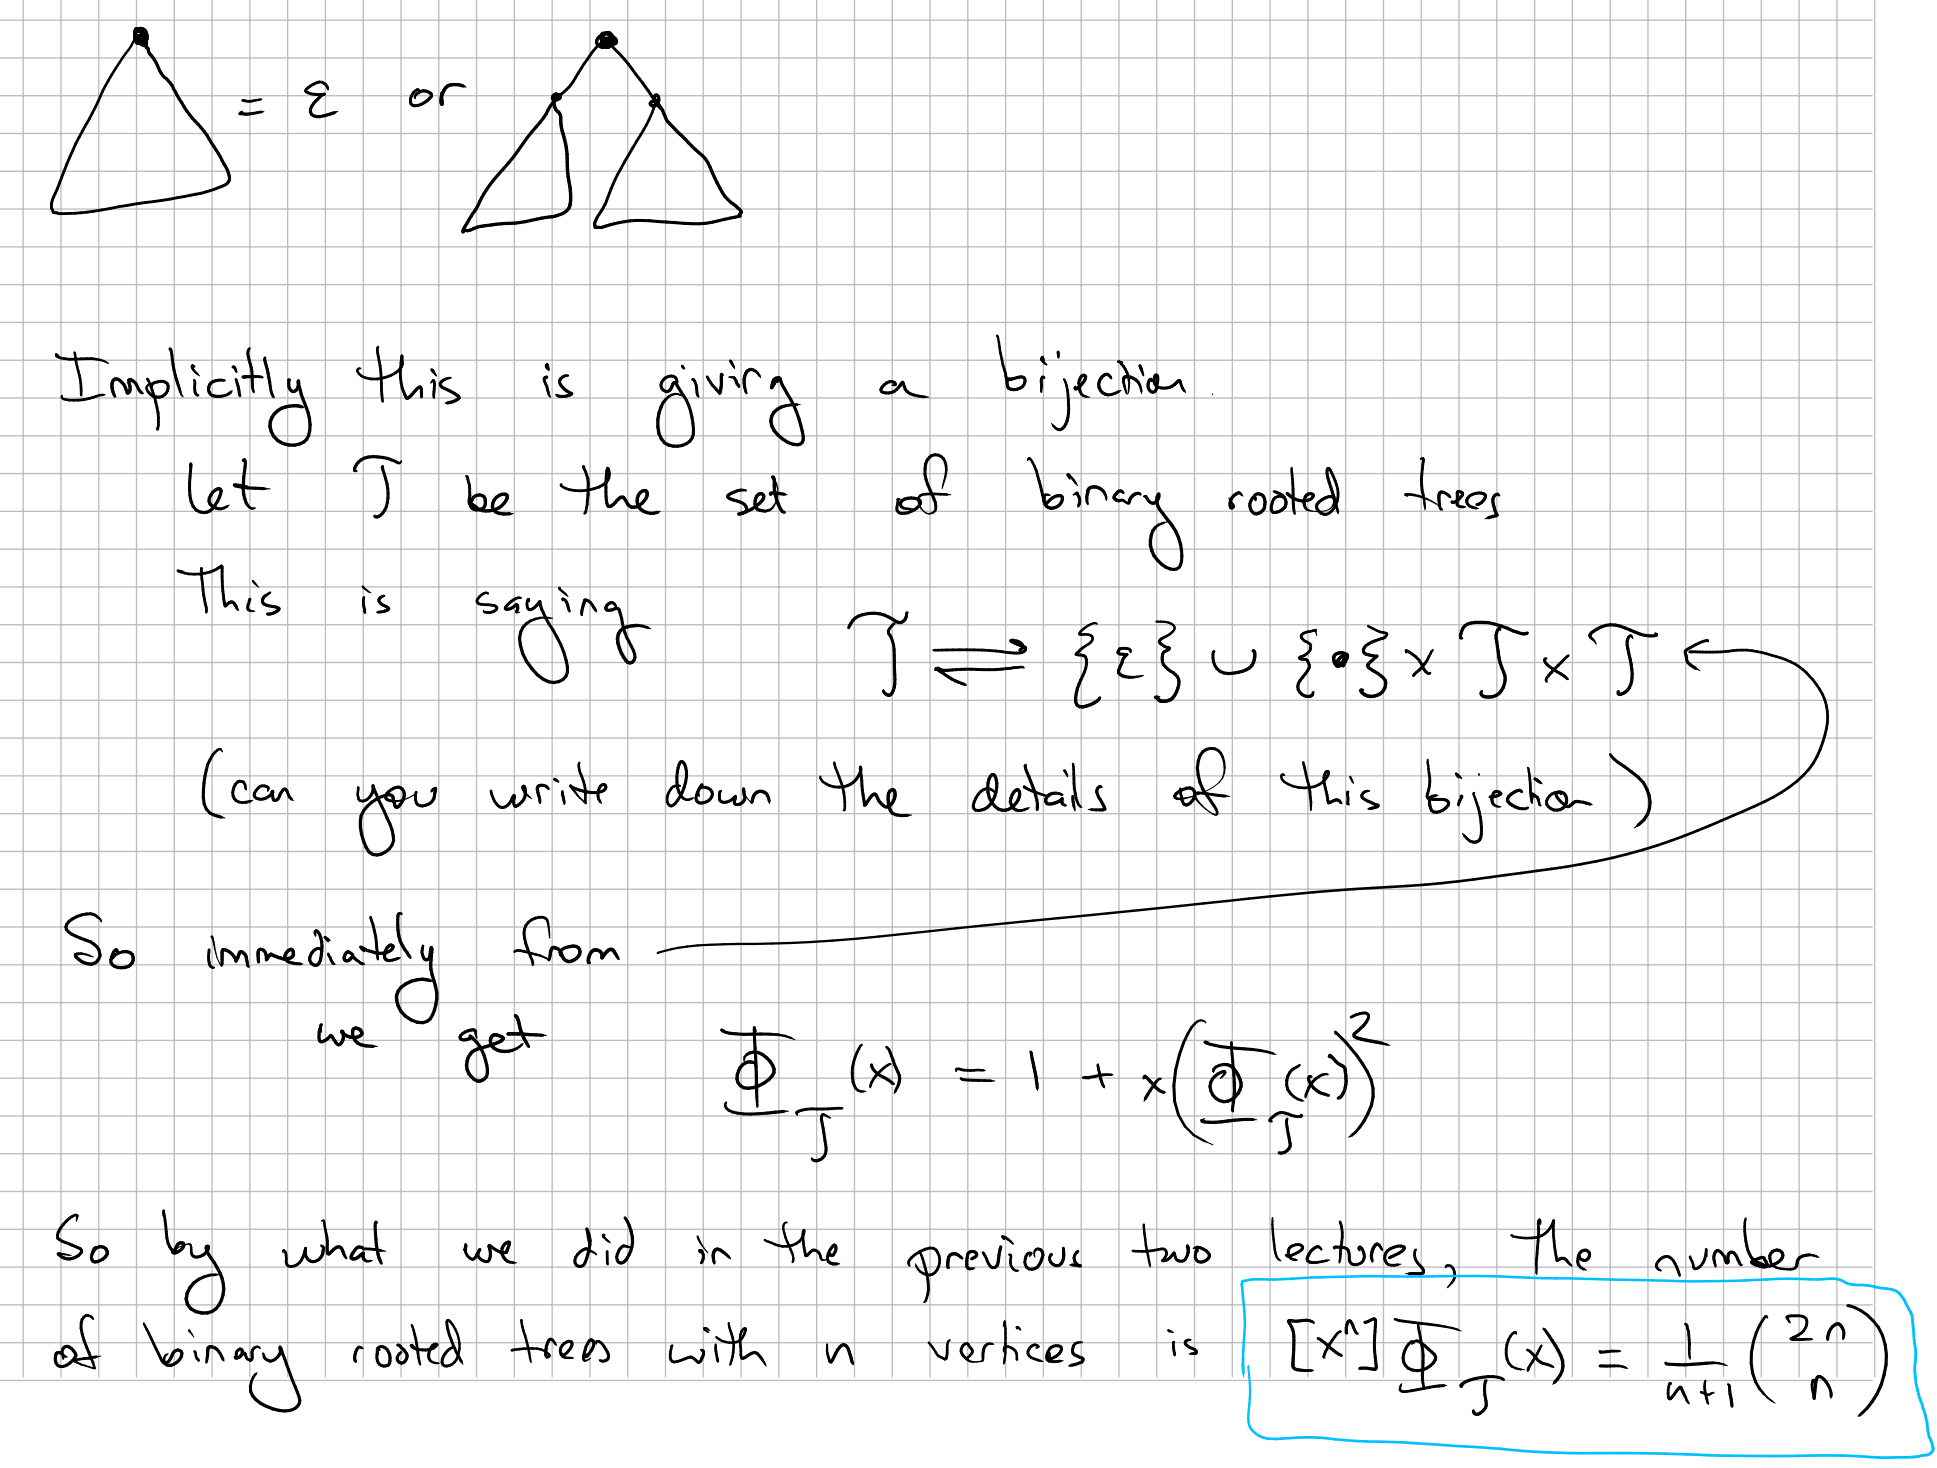 = ε or
Implicitly this is giving a bijection.
Let 𝒯 be the set of binary rooted trees
This is saying 𝒯 ⇌ {ε} ∪ {•} × 𝒯 × 𝒯
(can you write down the details of this bijection)
So immediately from
we get Φ_𝒯(x) = 1 + x(Φ_𝒯(x))²
So by what we did in the previous two lectures, the number
of binary rooted trees with n vertices is [xⁿ]Φ_𝒯(x) = 1/(n+1) (2n n)